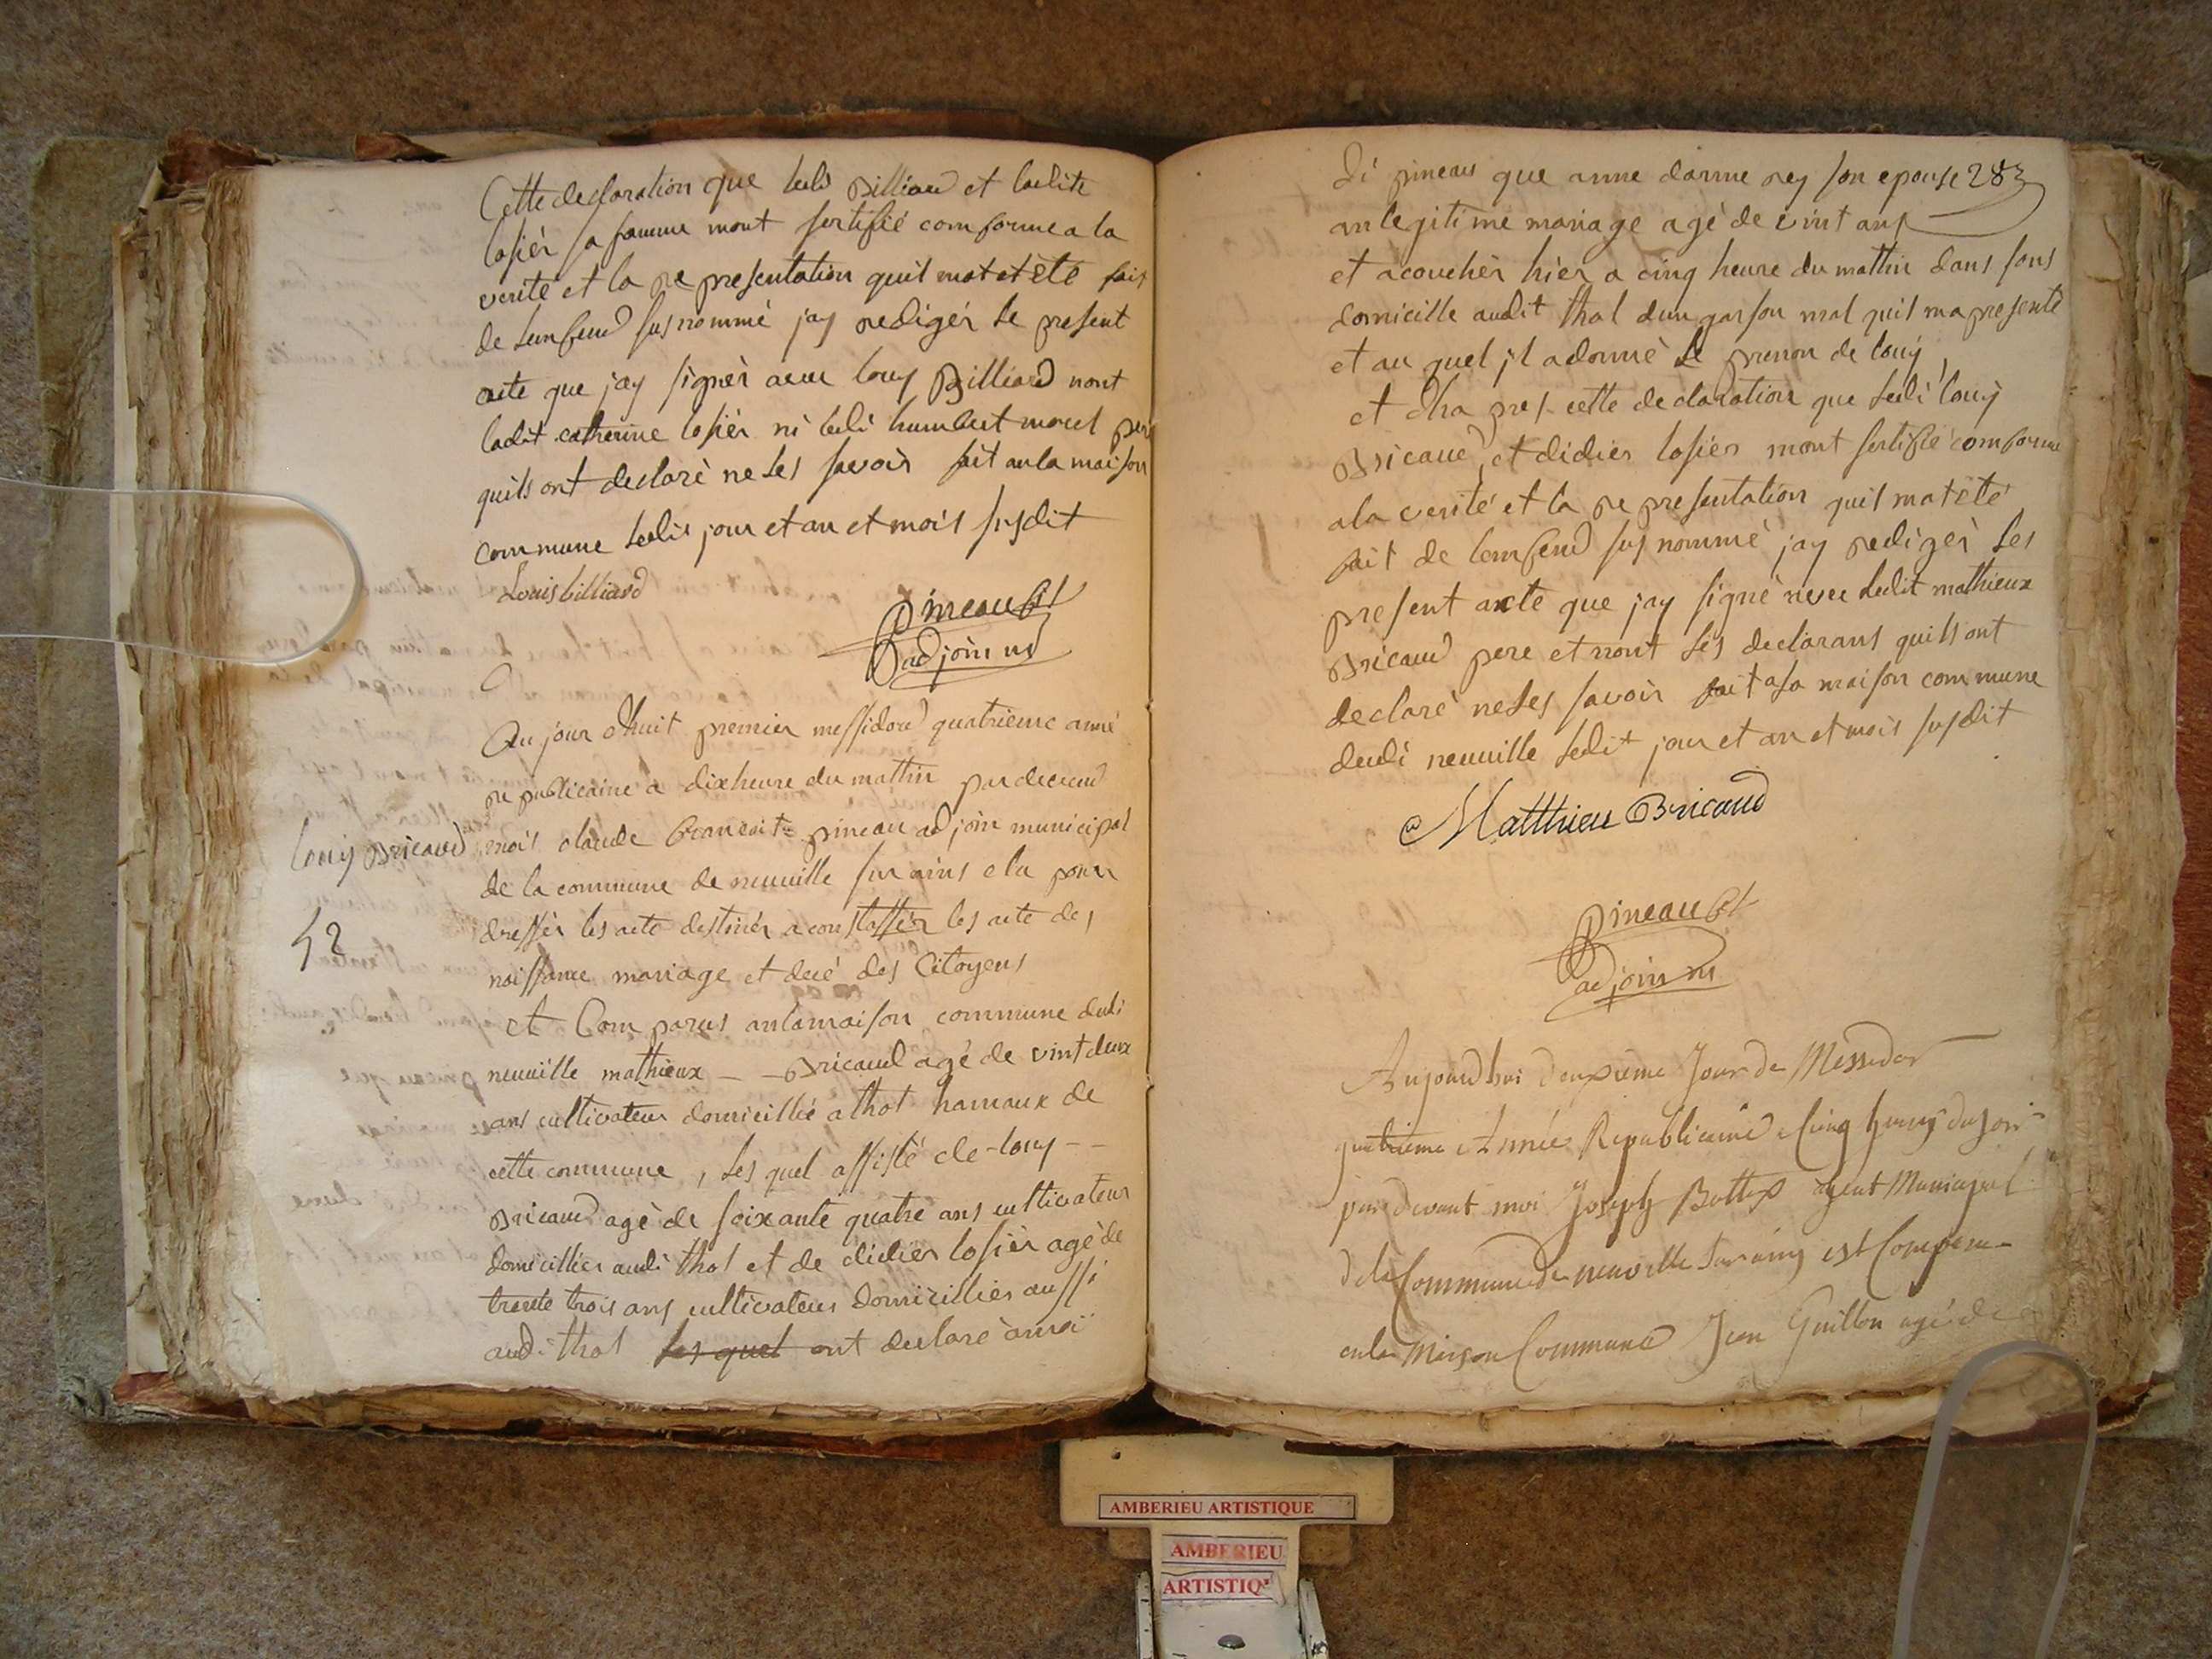 Cette declaration que leds Billiaud et ladite
losièr sa famme mont sertifié comforme a la
verité et la representation quil mat et èté fait
de lemfend susnommé jay redigér le present
acte que jay signèr avec louy Billiard nont
ladit catherine losièr ni ledi humbert morel per
quils ont declarè ne les savoir fait an la maison
commune ledis jour et an et mois susdit
Louis billiard
Pineau
adjoin
Au jour dhuit premier messidord quatrieme anné
republicaine a dix heure du mattin par devend
Louij Bricaud
moi claude francoit pineau adjoin municipal
de la commune de neuville sur ains elu pour
52
dressèr les acte destinér a constattèr les acte des
naissance mariage et decé des Citoyens
et Com parus an lamaison commune dudi
neuville mathieux - - Bricaud agé de vint deux
ans cultivateur domicillié a thol hamaux de
cette commune, les quel assistè de louy - -
Bricaud agè de soixante quatre ans cultivateur
domicillièr audi thol et de didièr losièr agè de
trante trois ans cultivateur domicillièr aussi
audi thol les quel ont declarè amoi
di pineau que anne danne rey son epouse 283
an legitime mariage agè de vint ans
et acouchèr hier a cinq heure du mattin dans sons
domicille audit thol dun garson mal quil ma presenté
et au quel il a donné le prenon de louy,
et dha pres cette declaration que ledi louy
Bricaud, et didièr losièr mont sertifié comforme
a la verité et la representation quil mat èté
fait de lemfend sus nommé jay redigèr les
present axcte que jay signé avec ledit mathieux
Bricaud pere et nont les declarans quils ont
declaré ne les savoir fait a la maison commune
dudi neuville ledit jour et an et mois susdit
Matthieu Bricaud
Pineau
adjoin m
Aujourdhui deuxième Jour de Messidor
quatrieme Année Republicaine a Cinq heures du soir
pardevant moi Joseph Bottex agent Municipal
dela Commune de neuville sur ains est Comparu
enla Maison Commune Jean Guillon agé de
AMBERIEU ARTISTIQUE
AMBERIEU
ARTISTIQ